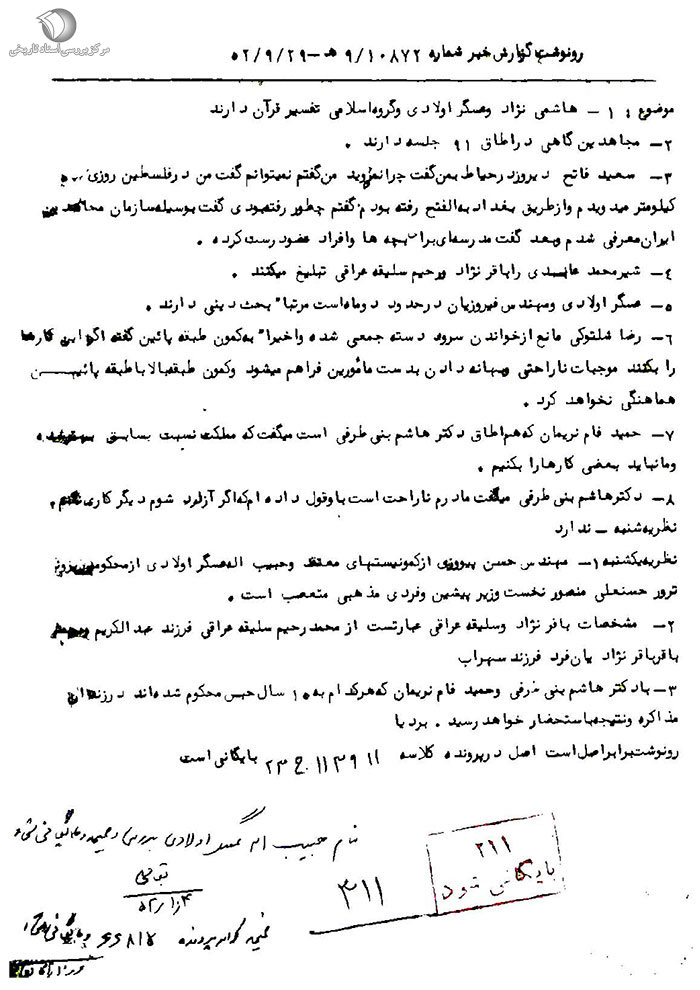 مرکز بررسی اسناد تاریخی
رونوشت گزارش خبر شماره ۹/۱۰۸۷۲ هـ - ۵۲/۹/۲۹
موضوع : ۱- هاشمی نژاد وعسگر اولادی وگروه اسلامی تفسیر قرآن دارند
۲- مجاهدین گاهی دراطاق ۹۱ جلسه دارند .
۳- سعید فاتح دیروزد رحیاط بمن گفت چرا نمیروید من گفتم نمیتوانم گفت من د رفلسطین روزی
کیلومتر مید ویدم وازطریق بغداد به الفتح رفته بودم گفتم چطور رفته بودی گفت بوسیله سازمان مجاهدین
ایران معرفی شدم وبعد گفت مدرسه ای برای بچه ها وافراد عضو درست کرده .
۴- شیرمحمد را باقر نژاد ورحیم سلیقه عراقی تبلیغ میکنند .
۵- عسگر اولادی ومهندس فیروزیان درحدود دوماه است مرتبا" بحث دینی دارند .
۶- رضا شلتوکی مانع ازخواندن سرود دسته جمعی شده واخیرا" به کمون طبقه پائین گفته اگر این کارها
را بکنند موجبات ناراحتی وبهانه دادن بدست مأمورین فراهم میشود وکمون طبقه بالا با طبقه پائیـن
هماهنگی نخواهد کرد .
۷- حمید فام نریمان که هم اطاق دکتر هاشم بنی طرفی است میگفت که مملکت نسبت بسابق
ومانباید بعضی کارها را بکنیم .
۸- دکتر هاشم بنی طرفی میگفت مادرم ناراحت است باوقول داده ام که اگر آزاد شوم دیگر کاری نکنم .
نظریه شنبه - ندارد
نظریه یکشنبه ۱- مهندس حسن پیروزی ازکمونیستهای معتقد وحبیب اله عسگر اولادی ازمحکومین
ترور حسنعلی منصور نخست وزیر پیشین وفردی مذهبی متعصب است .
۲- مشخصات باقر نژاد وسلیقه عراقی عبارتست از محمد رحیم سلیقه عراقی فرزند عبدالکریم
باقر باقر نژاد یان فرد فرزند سهراب
۳- با دکتر هاشم بنی طرفی وحمید فام نریمان که هرکدام به ۱۰ سال حبس محکوم شده اند درزندان
مذاکره ونتیجه باستحضار خواهد رسید . بردیا
رونوشت برابر اصل است اصل در پرونده کلاسه ۱۱ ۳۹ ۱۱ ج ۲۳ بایگانی است
بنام حبیب اله عسگر اولادی بررسی وضمیمه وبایگانی شود
۲۱۱
بایگانی شود
۳۱۱
ضمیمه پرونده ۶۶۸۱۷